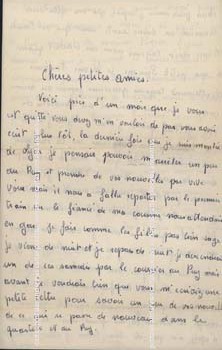 Chères petites amies.
Voici près d'un mois que je vous
et qu'ici vous devez m'en vouloir de pas vous avoir
écrit plus tôt, la dernière fois que je suis montée
de je pensais pouvoir m'arrêter un peu
au Puy et prendre de vos nouvelles de vive
voix mais il nous a fallu repartir par le premier
train car le fiancé de ma cousine nous attendait
en gare. Je fais comme les filles pas bien sages
je viens de nuit et je repars de nuit je descendrai
un de ces samedis par le courrier au Puy mais
avant je voudrais bien que vous m'écriviez une
petite lettre pour savoir un peu de vos nouvelles
de ce qui se passe de nouveau dans le
quartier et au Puy.